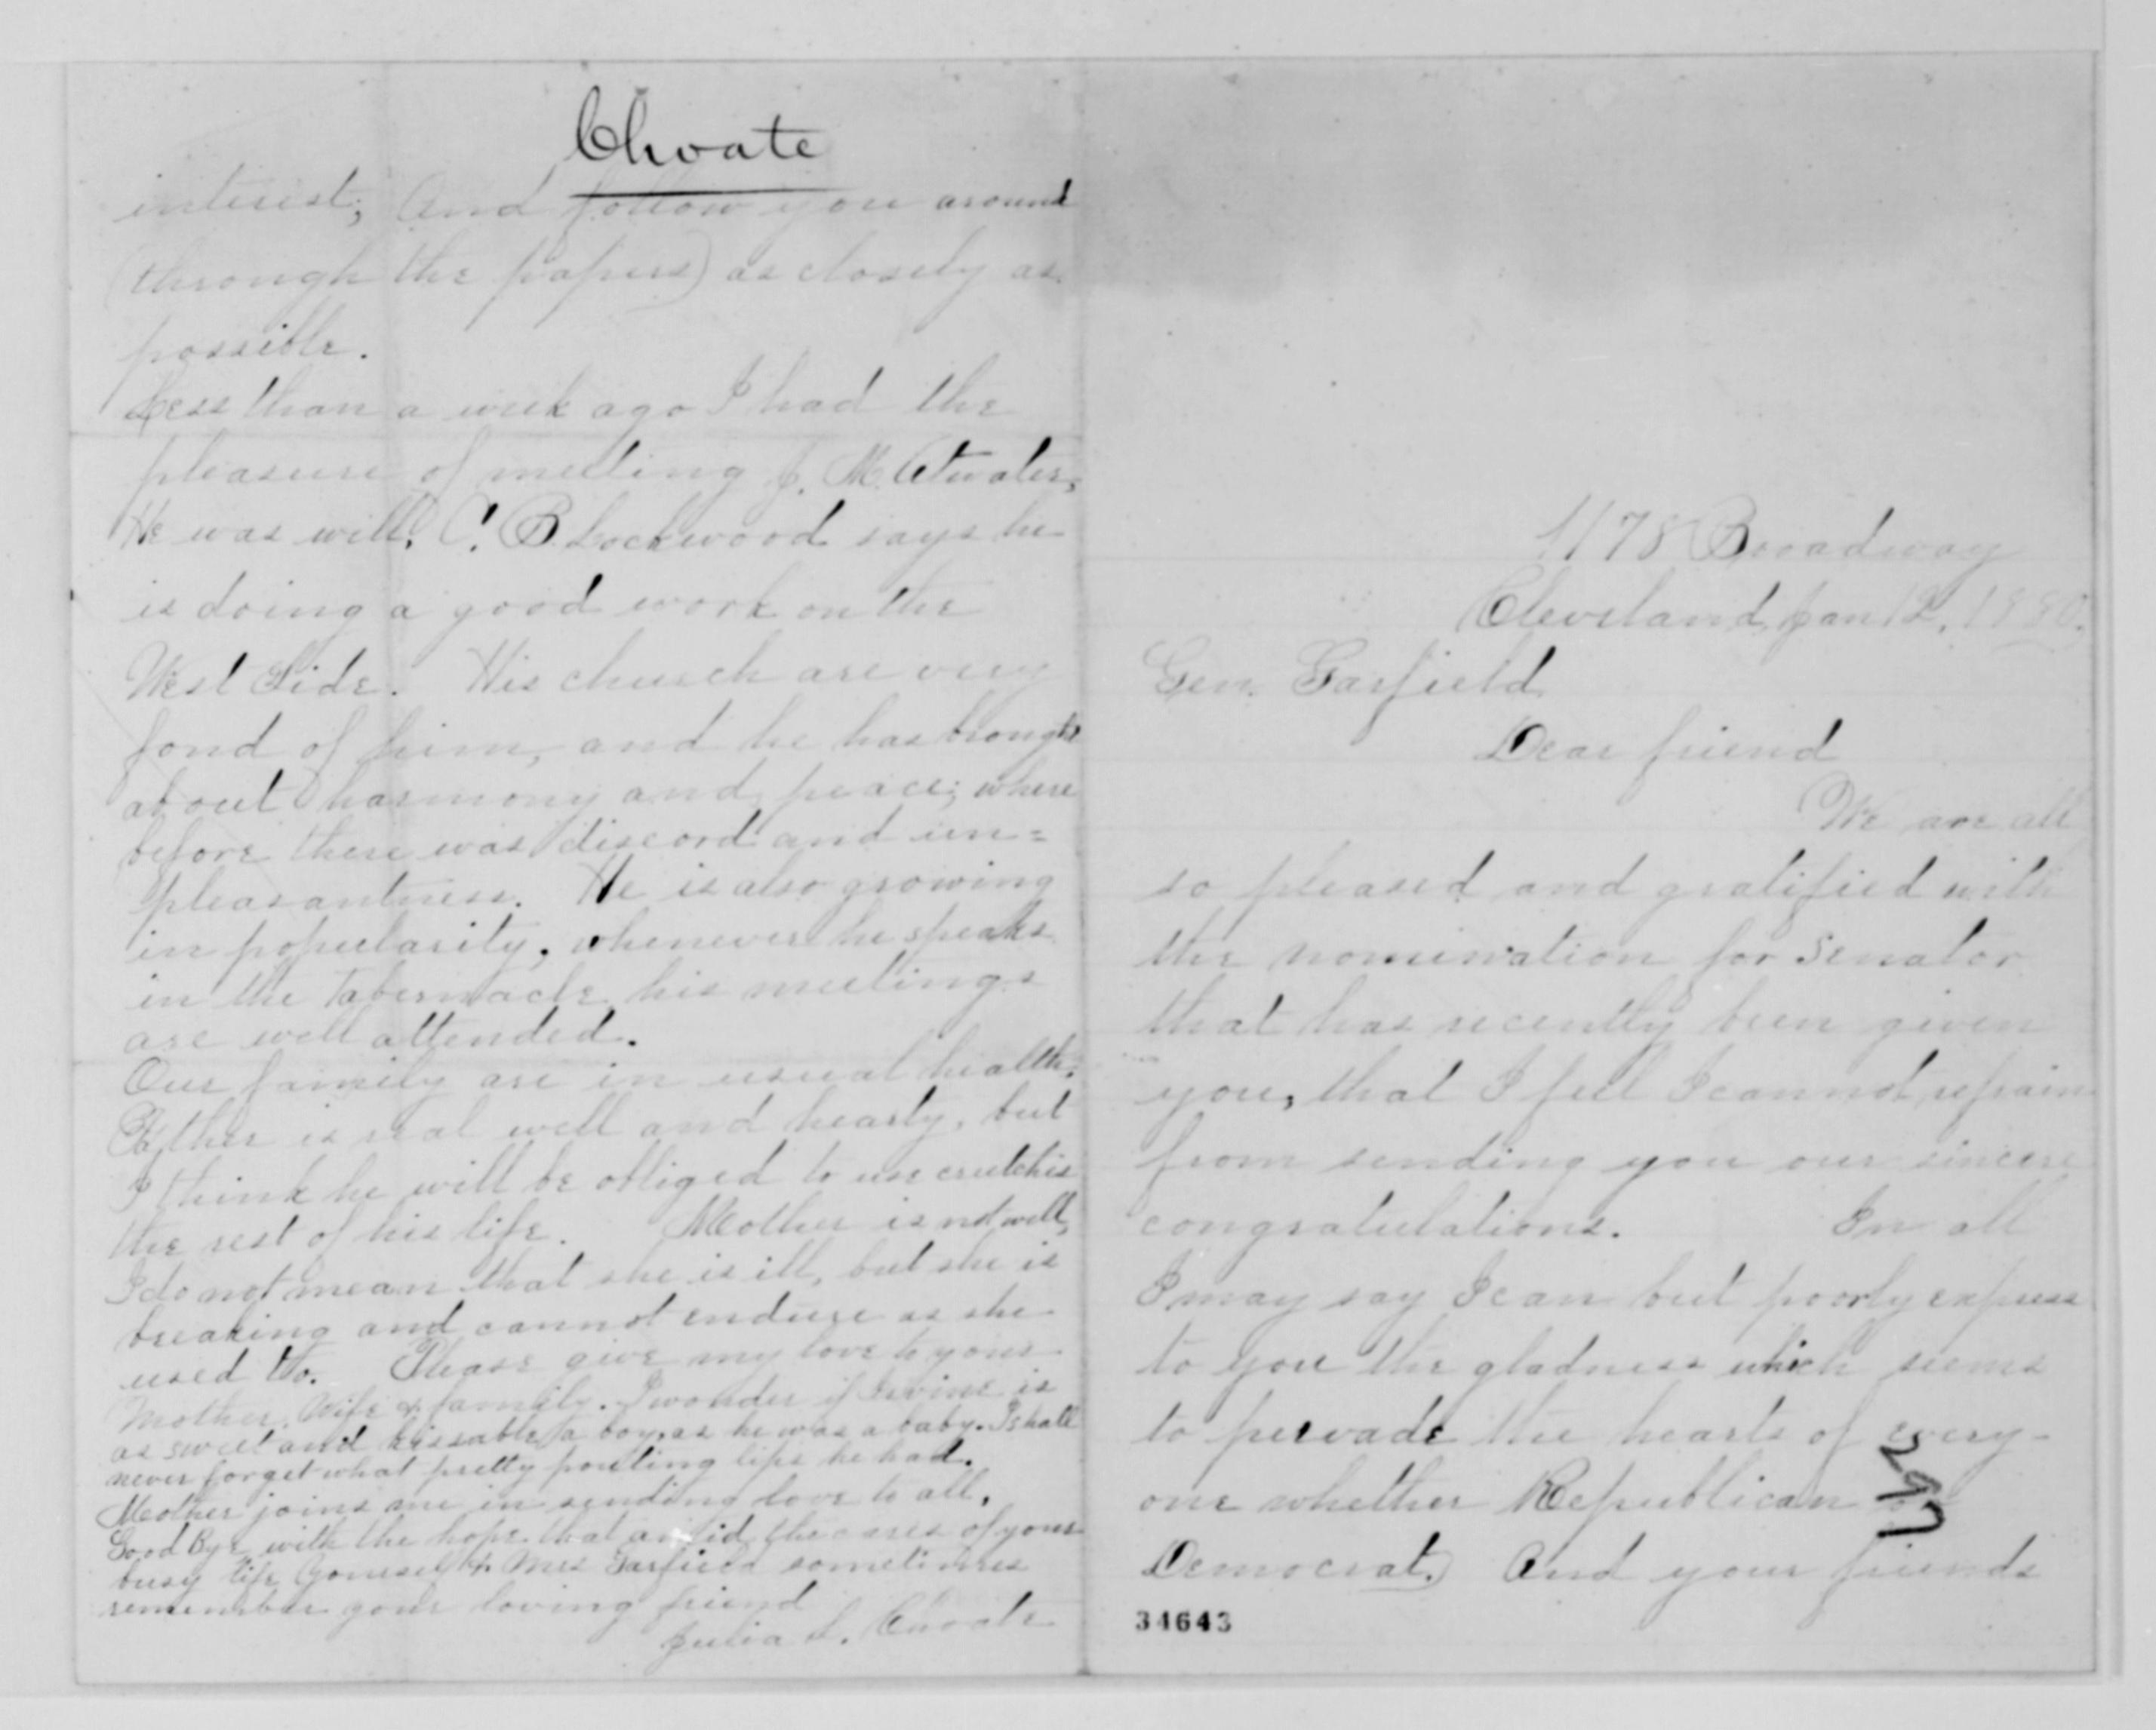 Choate
interest; And follow you around
(through the papers) as closely as
possible.
Less than a week ago I had the
pleasure of meeting J. M. Atwater,
He was well. C. B. Lockwood says he
is doing a good work on the
West Side. His church are very
fond of him, and he has brought
about harmony and peace; where
before there was discord and un=
pleasantness. He is also growing
in popularity, whenever he speaks
in the Tabernacle his meetings
are well attended.
Our family are in usual health.
Father is real well and hearty, but
I think he will be obliged to use crutches
the rest of his life. Mother is not well,
I do not mean that she is ill, but she is
breaking and cannot endure as she
used to. Please give my love to your
Mother, Wife & family. I wonder if Irvine is
as sweet and kissable a boy, as he was a baby. I shall
never forget what pretty pouting lips he had.
Mother joins me in sending love to all.
Good Bye with the hope that amid the cares of your
busy life Yourself & Mrs Garfield sometimes
remember your loving friend
Julia S. Choate
1178 Broadway
Cleveland, Jan 12, 1880.
Gen. Garfield
Dear friend
We are all
so pleased and gratified with
the nomination for Senator
that has recently been given
you, that I feel I cannot refrain
from sending you our sincere
congratulations. In all
I may say I can but poorly express
to you the gladness which seems
to pervade the hearts of every-
one whether Republican or
Democrat. And your friends
34643